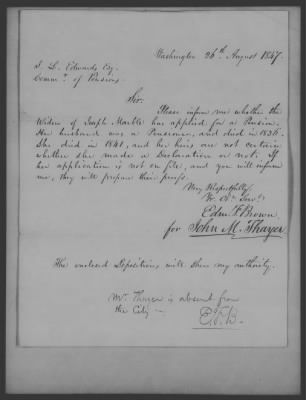 Washington 26th August 1847.
J. L. Edwards Esq.
Commr. of Pensions.
Sir.
Please inform me whether the
Widow of Joseph Marble has applied for a Pension.
Her husband was a Pensioner, and died in 1836.
She died in 1841, and her heirs are not certain
whether she made a Declaration or not. If
her application is not on file, and you will inform
me, they will prepare their proofs.
Very Respectfully
Yr. Ob. Servt.
Edm. F. Brown
for John M. Thayer
The enclosed Depositions will shew my authority.
Mr Thayer is absent from
the City —
E.F.B.